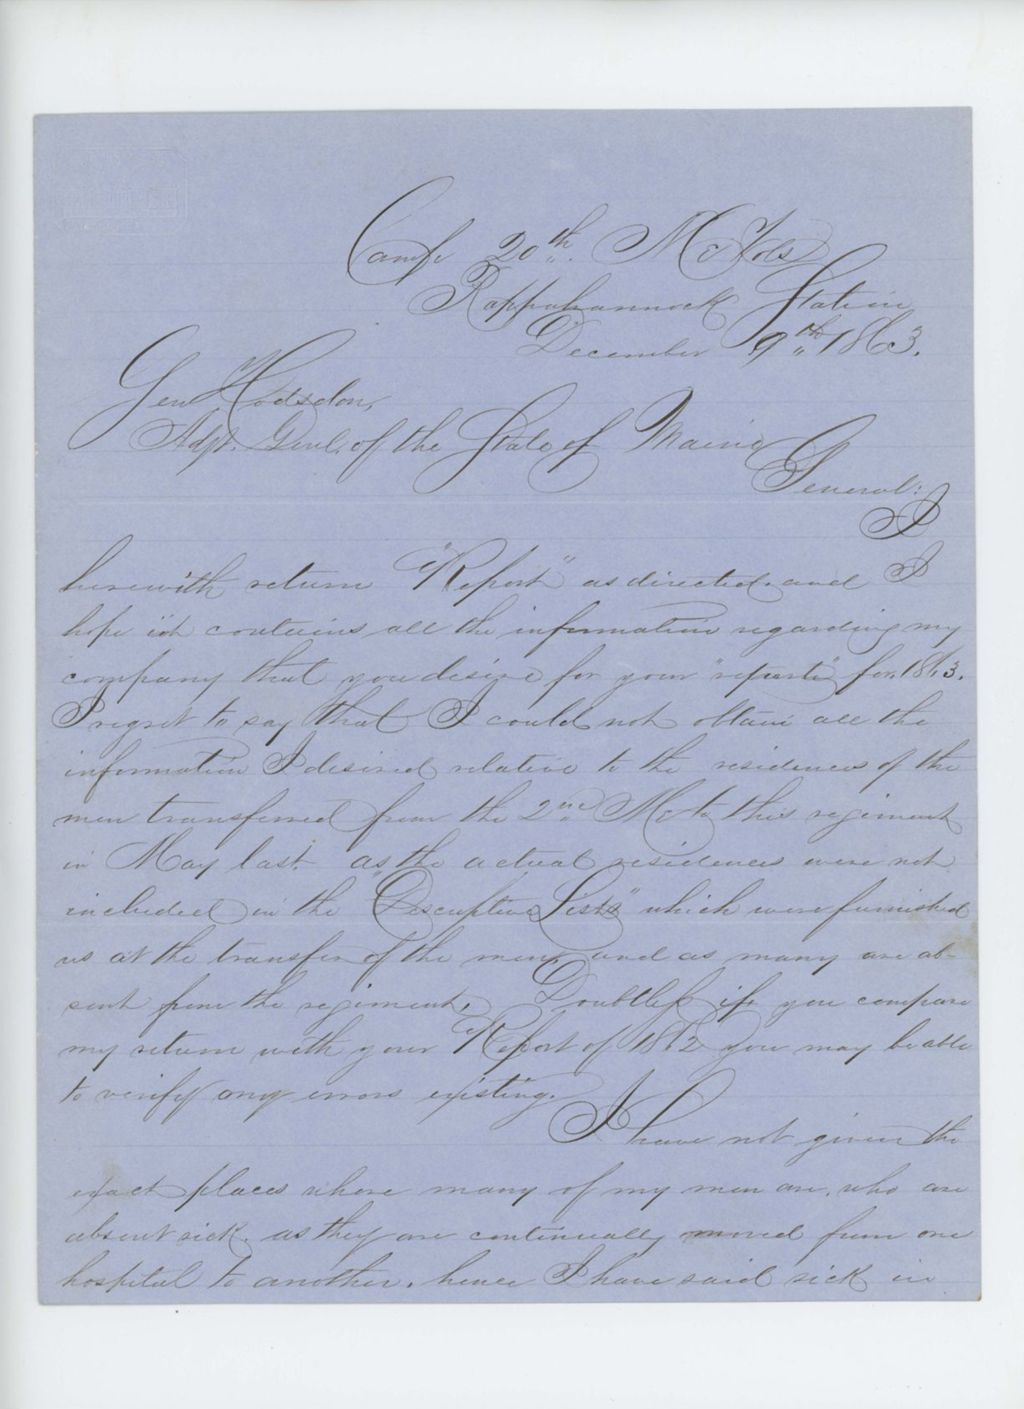 Camp 20th Me Vols
Rappahannock Station
December 9th 1863.
Gen Hodsdon,
Adjt. Genl. of the State of Maine
General:
I
herewith return "Report" as directed and I
hope it contains all the information regarding my
company that you desire for your "reports" for 1863.
I regret to say that I could not obtain all the
information I desired relative to the residences of the
men transferred from the 2nd Me to this regiment
in May last. as the actual residences were not
included in the "Descriptive Lists" which were furnished
us at the transfer of the men, and as many are ab-
sent from the regiment. Doubtless if you compare
my return with your Report of 1862 you may be able
to verify any errors existing.
I have not given the
exact places where many of my men are, who are
absent sick. as they are continually moved from one
hospital to another. hence I have said sick in